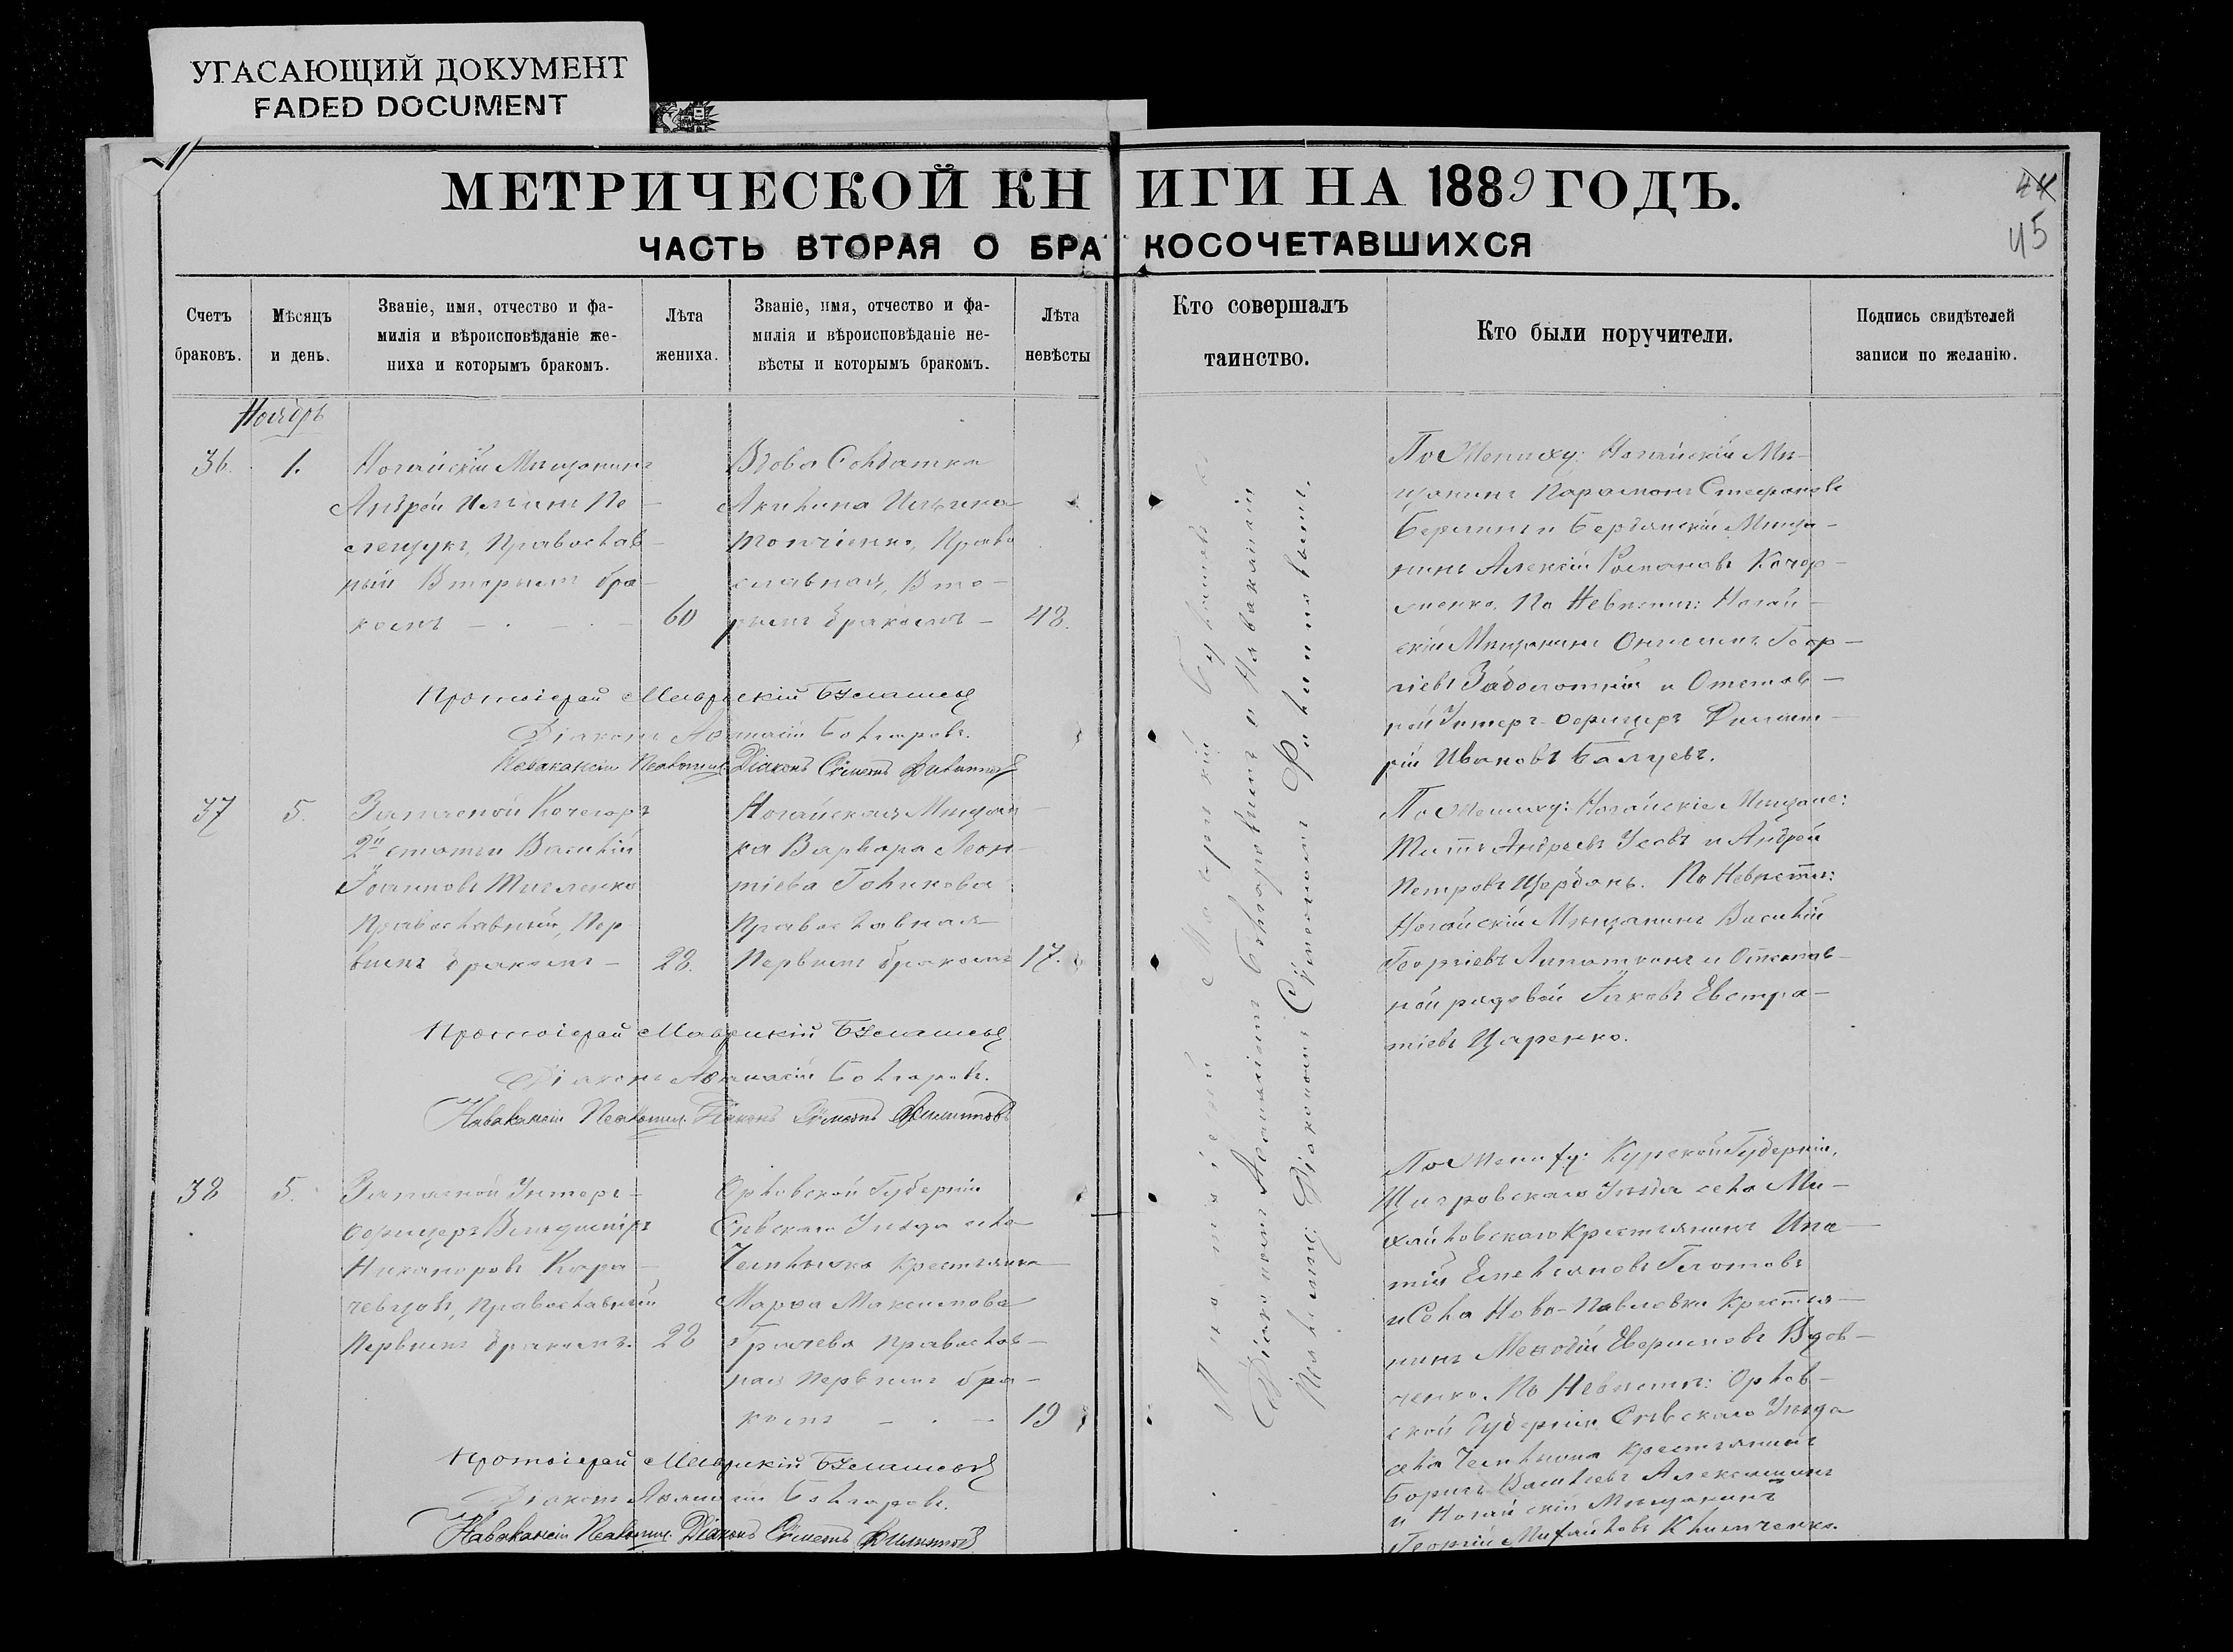 УГАСАЮЩИЙ ДОКУМЕНТ
FADED DOCUMENT
МЕТРИЧЕСКОЙ КНИГИ НА 1889 ГОДЪ.
44
45
ЧАСТЬ ВТОРАЯ О БРАКОСОЧЕТАВШИХСЯ
Счетъ
браковъ.
Мѣсяцъ
и день.
Званіе, имя, отчество и фа-
милія и вѣроисповѣданіе же-
ниха и которымъ бракомъ.
Лѣта
жениха.
Званіе, имя, отчество и фа-
милія и вѣроисповѣданіе не-
вѣсты и которымъ бракомъ.
Лѣта
невѣсты
Кто совершалъ
таинство.
Кто были поручители.
Подпись свидѣтелей
записи по желанію.
Ноябрь
36.
1.
Ногайскій Мѣщанинъ
Андрей Ильинъ Пе-
лещукъ, Православ-
ный Вторымъ бра-
комъ
60
Вдова Солдатка
Акилина Ильина
Православная, Вто-
рымъ бракомъ
48.
По Жениху: Ногайскій Мѣ-
щанинъ Парамонъ Стефановъ
и Бердянскій Мѣща-
нинъ Алексій Романовъ Кочер-
менко. По Невѣстѣ: Ногай-
скій Мѣщанинъ Онисимъ Геор-
гіевъ Заболотній и Отстав-
ной Унтеръ-офицеръ Димит-
рій Ивановъ Балуевъ.
Протоіерей Маврикій
Діаконъ Афанасій Болгаровъ.
На вакансіи Псаломщ. Діаконъ Сѵмеонъ Филиповъ
37
5.
Запасной Кочегаръ
2й статьи Василій
Іоанновъ
Православный, Пер-
вымъ бракомъ
28.
Ногайская Мѣщан-
ка Варвара Леон-
тіева Голикова
Православная
Первымъ бракомъ
17.
По Жениху: Ногайскіе Мѣщане:
Титъ Андреевъ Усовъ и Андрей
Петровъ Щербакъ. По Невѣстѣ:
Ногайскій Мѣщанинъ Василій
Георгіевъ Липаткинъ и Отстав-
ной рядовой Іаковъ Евстра-
тіевъ Царенко.
Протоіерей Маврикій
Діаконъ Афанасій Болгаровъ.
На вакансіи Псаломщ. Діаконъ Сѵмеонъ Филиповъ
38
5.
Запасной Унтеръ-
офицеръ Владиміръ
Никаноровъ Кара-
чевцовъ, Православный
Первымъ бракомъ.
28
Орловской Губерніи
Сѣвскаго Уѣзда села
Чемлыжа Крестьянка
Марфа Максимова
Грачева Православ-
ная Первымъ бра-
комъ
19
По Жениху: Курской Губерніи,
Щигровскаго Уѣзда села Ми-
хайловскаго Крестьянинъ Ипа-
тій Емельяновъ Глотовъ
и Села Ново-Павловки Крестья-
нинъ Меѳодій Вдов-
ченко. По Невѣстѣ: Орлов-
ской Губерніи Сѣвскаго Уѣзда
села Чемлыжа Крестьянинъ
Борисъ Васильевъ Алексашинъ
и Ногайскій Мѣщанинъ
Георгій Михайловъ Климченко.
Протоіерей Маврикій
Діаконъ Афанасій Болгаровъ.
На вакансіи Псаломщ. Діаконъ Сѵмеонъ Филиповъ
Протоіерей Маврикій
Діакономъ Афанасіемъ Болгаровымъ и На вакансіи
Псаломщ. Діакономъ Сѵмеономъ Филиповымъ.